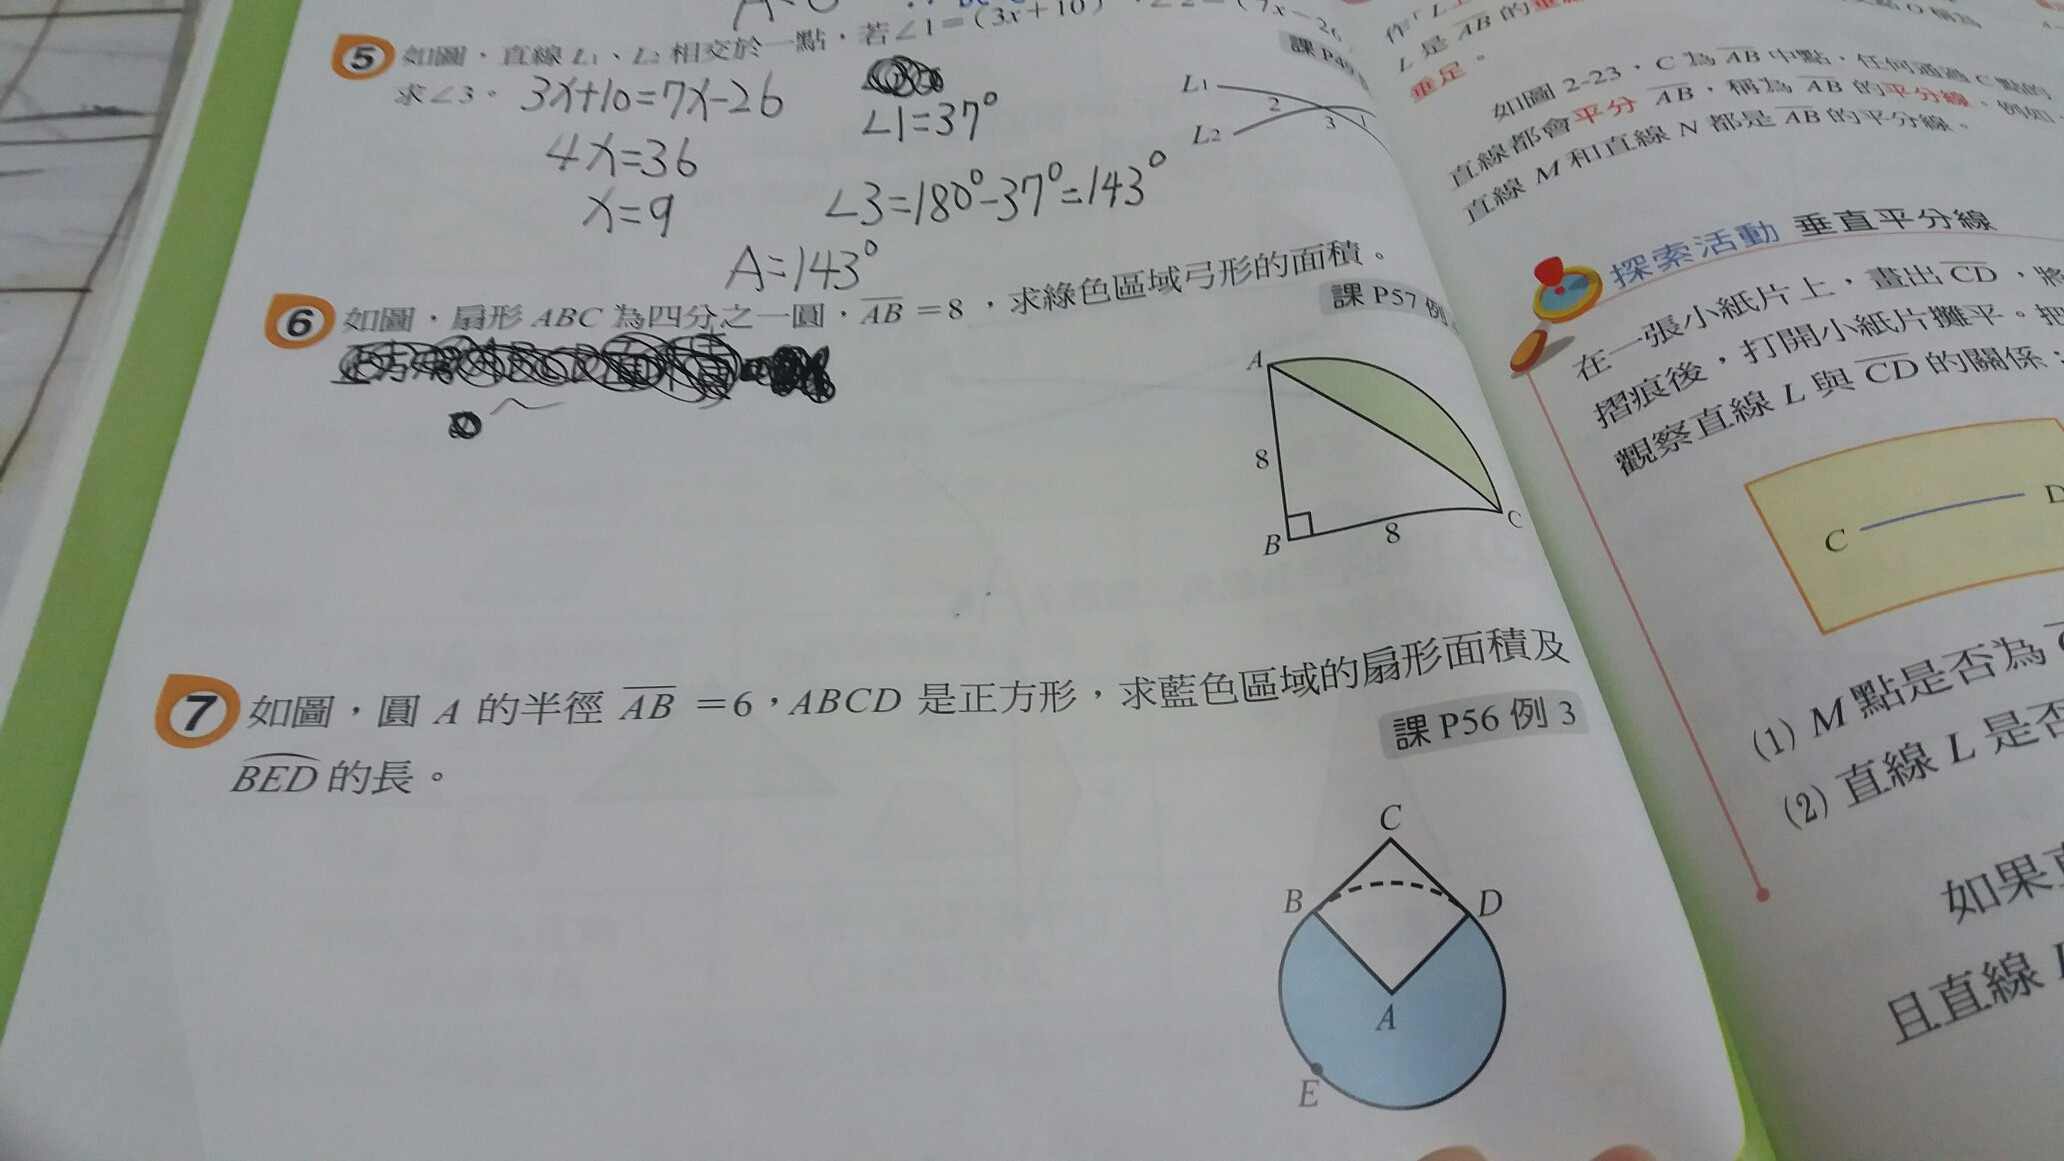 5 如圖，直線 L1、L2 相交於一點，若∠1＝(3x＋10)
課 P49
求∠3。
3x+10=7x-26
4x=36
x=9
∠1=37°
∠3=180°-37°=143°
A=143°
L1
L2
2
3
1
6 如圖，扇形 ABC 為四分之一圓，AB＝8，求綠色區域弓形的面積。
課 P57 例
A
8
B
8
C
7 如圖，圓 A 的半徑 AB ＝6，ABCD 是正方形，求藍色區域的扇形面積及
課 P56 例 3
BED 的長。
C
B
D
A
E
L 是 AB 的
垂足。
如圖 2-23，C 為 AB 中點，任何通過 C 點的
直線都會平分 AB，稱為 AB 的平分線，例如
直線 M 和直線 N 都是 AB 的平分線。
探索活動 垂直平分線
在一張小紙片上，畫出 CD，將
摺痕後，打開小紙片攤平。把
觀察直線 L 與 CD 的關係：
C
D
(1) M 點是否為
(2) 直線 L 是否
如果直
且直線